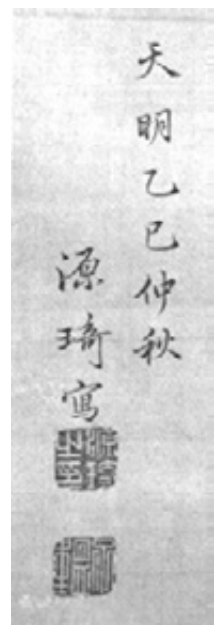 天明乙巳仲秋
源琦寫